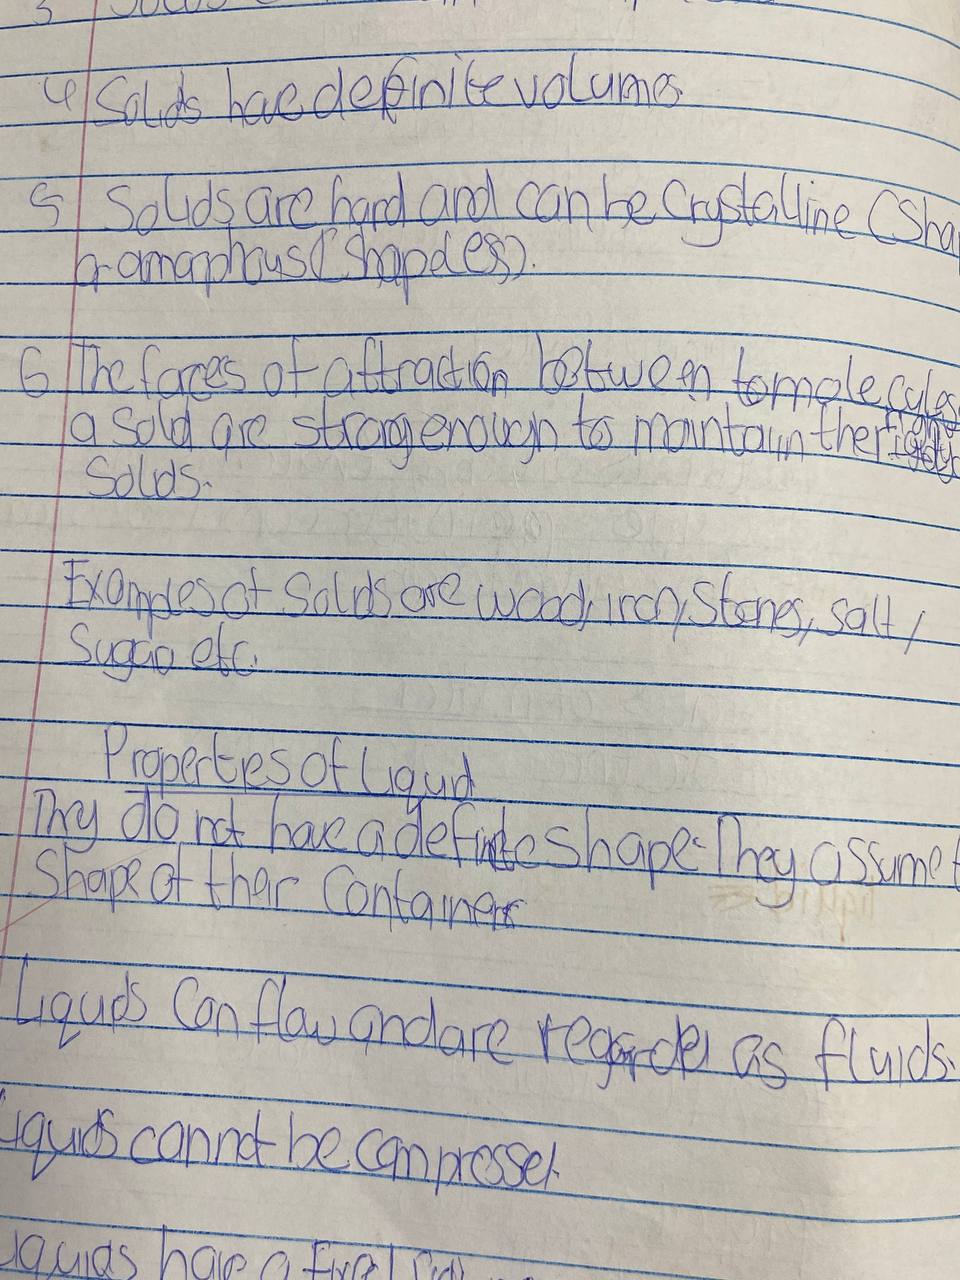 4 Solids have definite volumes
5 Solids are hard and can be Crystalline (Sha
or amorphous (Shapeless).
6 The forces of attraction between to molecules
a Solid are strong enough to maintain the rigidity
Solids.
Examples of Solids are wood, iron, Stones, salt,
Sugar etc.
Properties of Liquid
They do not have a definite shape. They assume t
Shape of their Containers
Liquids Can flow and are regarded as fluids.
Liquids cannot be compressed.
Liquids have a fixed